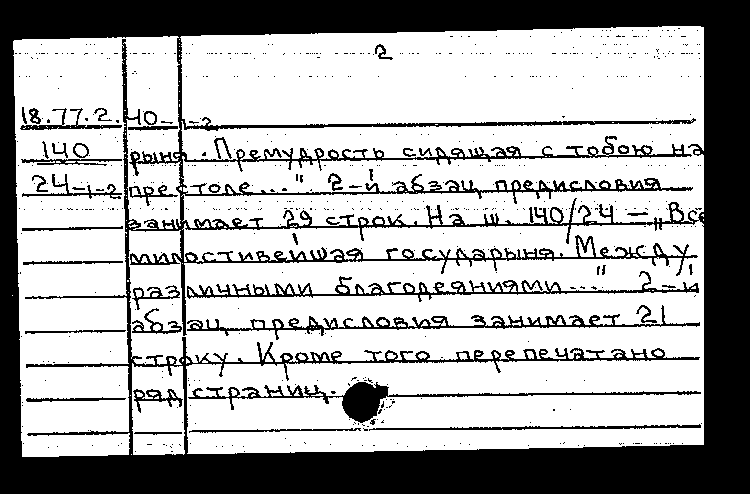 2
18.77.2.40-1-2
140 рыня. Премудрость сидящая с тобою на
24-1-2 престоле..." 2-й абзац предисловия
занимает 29 строк. На ш. 140/24 – „Все
милостивейшая государыня. Между
различными благодеяниями..." 2-й
абзац предисловия занимает 21
строку. Кроме того перепечатано
ряд страниц.